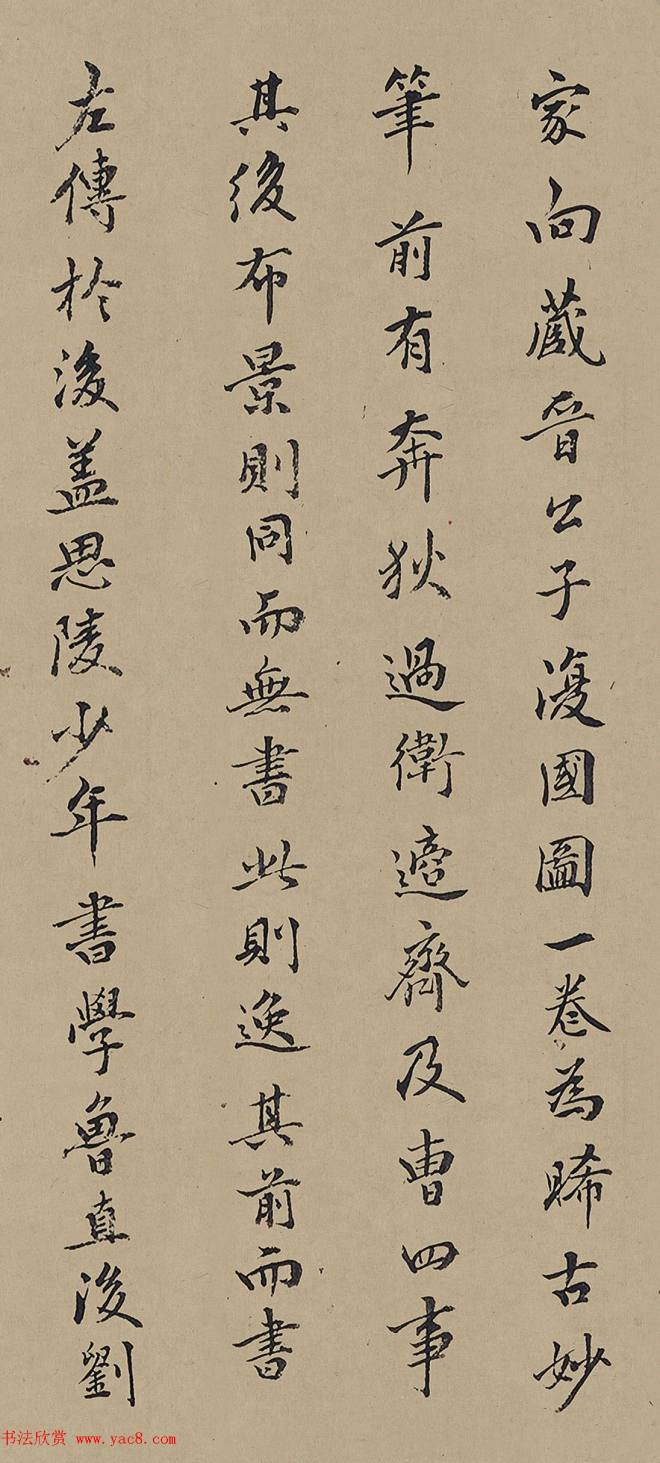 家向藏晉公子復國圖一卷為晞古妙
筆前有奔狄過衛適齊及曹四事
其後布景則同而無書此則逸其前而書
左傳於後蓋思陵少年書學魯直後劉
书法欣赏 www.yac8.com